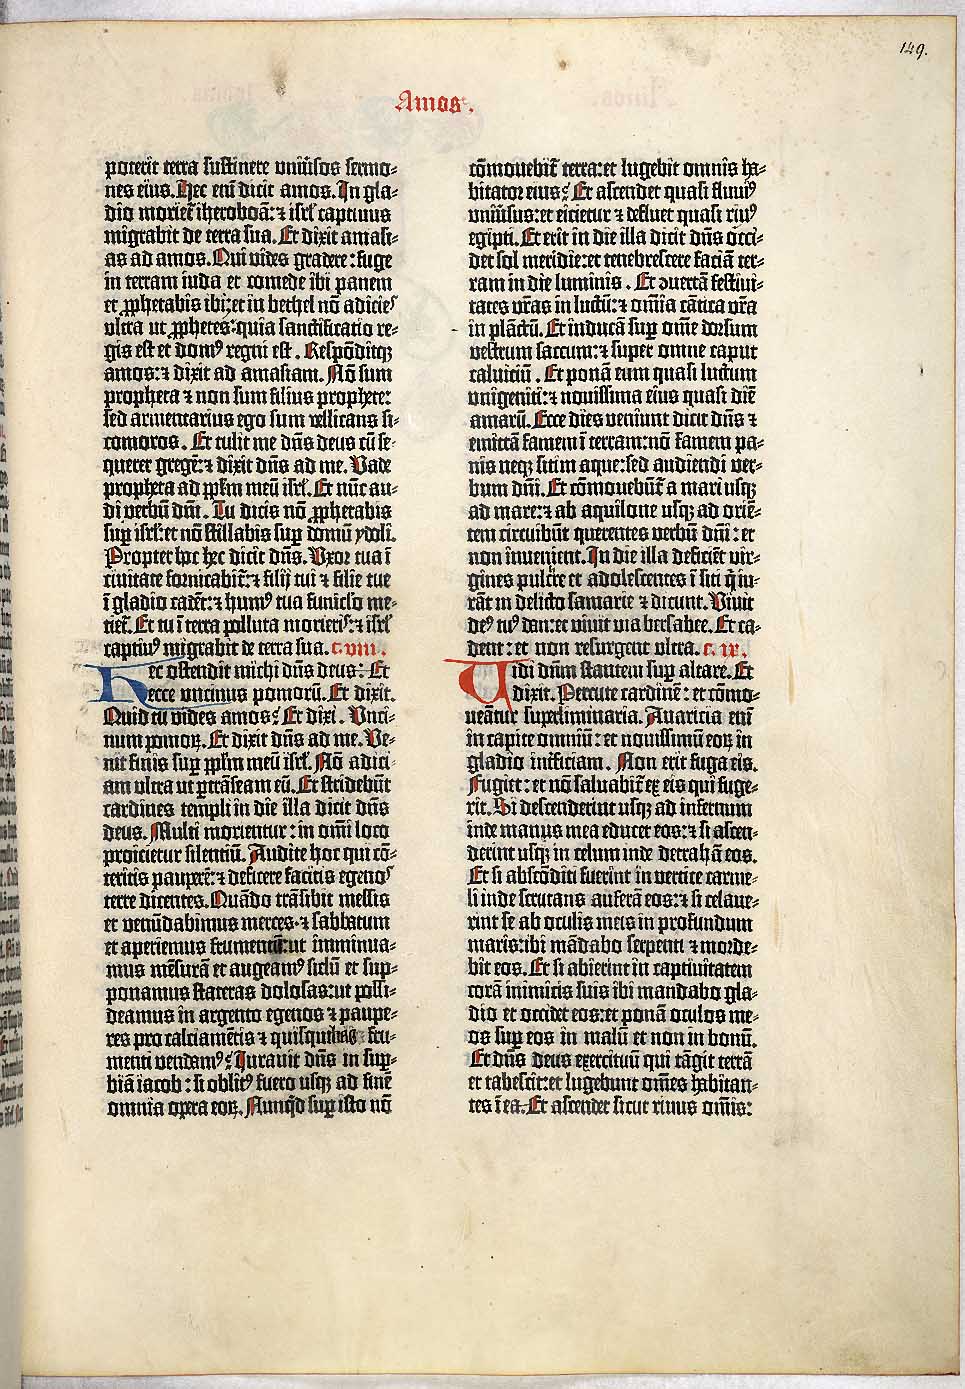 149.
Amos.
poterit terra sustinere uniũsos sermo-
nes eius. Hec eni dicit amos. In gla-
dio moriet iheroboã: ⁊ isrl captiuus
migrabit de terra sua. Et dixit amasi-
as ad amos. Qui vides gradere: fuge
in terram iuda et comede ibi panem
et ꝓphetabis ibi: et in bethel nõ adicies
ultra ut ꝓphetes: quia sanctificatio re-
gis est et domꝰ regni est. Respõditqꝫ
amos: ⁊ dixit ad amasiam. Nõ sum
propheta ⁊ non sum filius prophete:
sed armentarius ego sum vellicans si-
comoros. Et tulit me dñs deus cũ se-
querer gregẽ: ⁊ dixit dñs ad me. Vade
propheta ad pplm meũ isrl. Et nũc au-
di verbũ dñi. Tu dicis nõ ꝓphetabis
suꝑ isrl: et nõ stillabis suꝑ domũ ydoli.
Propter hoc hec dicit dñs. Uxor tua ĩ
ciuitate fornicabit̃: ⁊ filij tui ⁊ filie tue
ĩ gladio cadẽt: ⁊ humꝰ tua funiclo me-
tiet̃. Et tu ĩ terra polluta morieris: ⁊ isrl
captiuꝰ migrabit de terra sua. c. viii.
Hec ostendit michi dñs deus: Et
ecce uncinus pomorũ. Et dixit.
Quid tu vides amos? Et dixi. Unci-
num pomoꝝ. Et dixit dñs ad me. Ve-
nit finis suꝑ pplm meũ isrl. Nõ adici-
am ultra ut ꝑtrãseam eũ. Et stridebũt
cardines templi in die illa dicit dñs
deus. Multi morientur: in omĩ loco
proicietur silentiũ. Audite hoc qui cõ-
teritis pauperẽ: ⁊ deficere facitis egenos
terre dicentes. Quãdo trãsibit messis
et venũdabimus merces: ⁊ sabbatum
et aperiemus frumentũ: ut imminua-
mus mẽsurã et augeamꝰ siclũ et sup-
ponamus stateras dolosas: ut possi-
deamus in argento egenos ⁊ paupe-
res pro calciamẽtis ⁊ quisquilias fru-
menti vendamꝰ? Iurauit dñs in suꝑ-
biã iacob: si oblitꝰ fuero usqꝫ ad finẽ
omnia opera eoꝝ. Nunqd suꝑ isto nõ
cõmouebit̃ terra: et lugebit omnis ha-
bitator eius? Et ascendet quasi fluuiꝰ
uniũsus: et eicietur ⁊ defluet quasi riuꝰ
egipti. Et erit in die illa dicit dñs occi-
det sol meridie: et tenebrescere faciã ter-
ram in die luminis. Et ꝯuertã festiui-
tates vr̃as in luctũ: ⁊ omĩa cãtica vr̃a
in plãctũ. Et inducã suꝑ omẽ dorsum
vestrum saccum: ⁊ super omne caput
caluiciũ. Et ponã eum quasi luctum
unigeniti: ⁊ nouissima eius quasi diẽ
amarũ. Ecce dies veniunt dicit dñs ⁊
emittã famem ĩ terram: nõ famem pa-
nis neqꝫ sitim aque: sed audiendi ver-
bum dñi. Et cõmouebũt̃ a mari usqꝫ
ad mare: ⁊ ab aquilone usqꝫ ad oriẽ-
tem circuibũt querentes verbũ dñi: et
non inuenient. In die illa deficiẽt vir-
gines pulcre et adolescentes ĩ siti q̃ iu-
rãt in delicto samarie ⁊ dicunt. Viuit
deꝰ tuꝰ dan: et viuit via bersabee. Et ca-
dent: et non resurgent ultra. c. ix.
Vidi dñm stantem suꝑ altare. Et
dixit. Percute cardinẽ: et cõmo-
ueãtur supeliminaria. Auaricia eni
in capite omniũ: et nouissimũ eoꝝ in
gladio interficiam. Non erit fuga eis.
Fugiet: et nõ saluabit̃ ex eis qui fuge-
rit. Si descenderint usqꝫ ad infernum
inde manus mea educet eos: ⁊ si ascen-
derint usqꝫ in celum inde detrahã eos.
Et si abscõditi fuerint in vertice carme-
li inde scrutans auferã eos: ⁊ si celaue-
rint se ab oculis meis in profundum
maris: ibi mãdabo serpenti ⁊ morde-
bit eos. Et si abierint in captiuitatem
corã inimicis suis ibi mandabo gla-
dio et occidet eos: et ponã oculos me-
os suꝑ eos in malũ et non in bonũ.
Et dñs deus exercituũ qui tãgit terrã
et tabescit: et lugebunt omẽs habitan-
tes ĩ ea. Et ascendet sicut riuus omĩs: